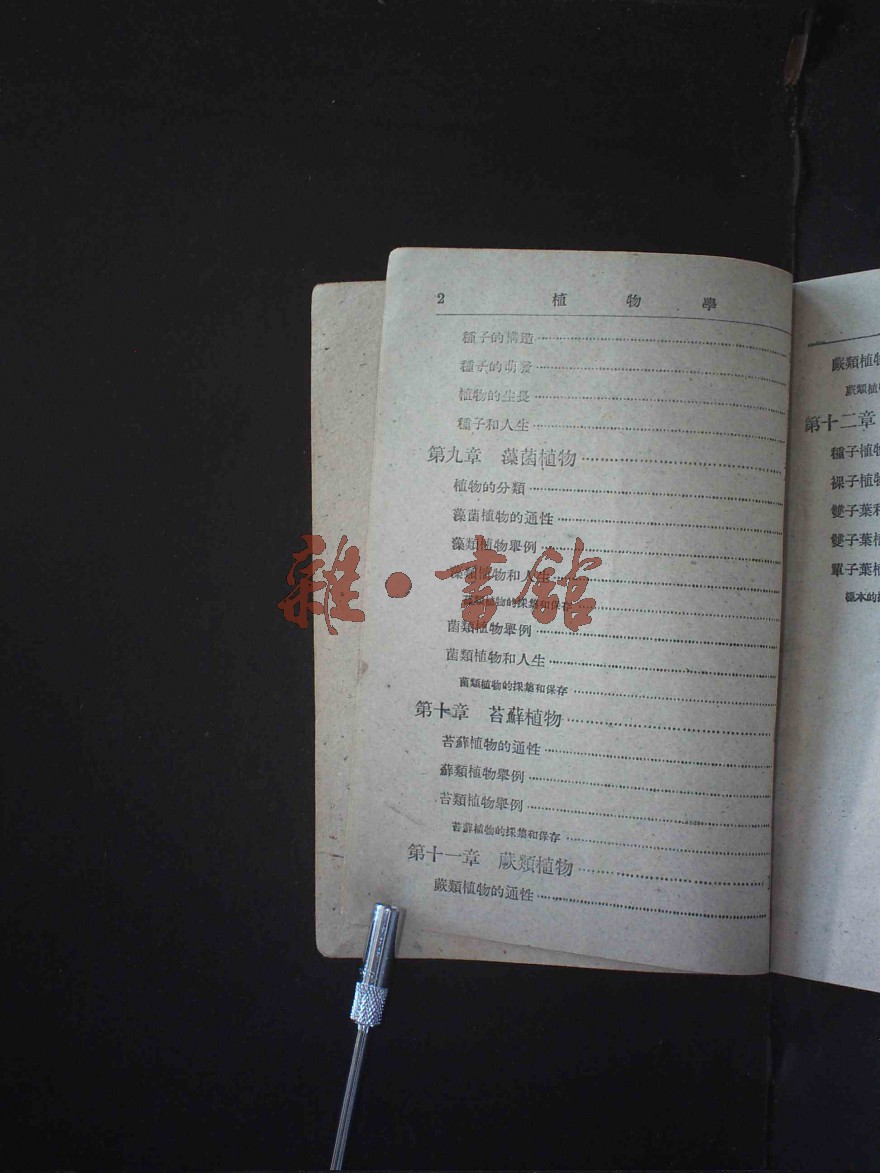 2 植物學
種子的構造
種子的萌發
植物的生長
種子和人生
第九章 藻菌植物
植物的分類
藻菌植物的通性
藻類植物舉例
藻類植物和人生
藻類植物的採集和保存
菌類植物舉例
菌類植物和人生
菌類植物的採集和保存
第十章 苔蘚植物
苔蘚植物的通性
蘚類植物舉例
苔類植物舉例
苔蘚植物的採集和保存
第十一章 蕨類植物
蕨類植物的通性
蕨類植物
蕨類植
第十二章
種子植物
裸子植物
雙子葉
雙子葉植
單子葉植
雜·書館